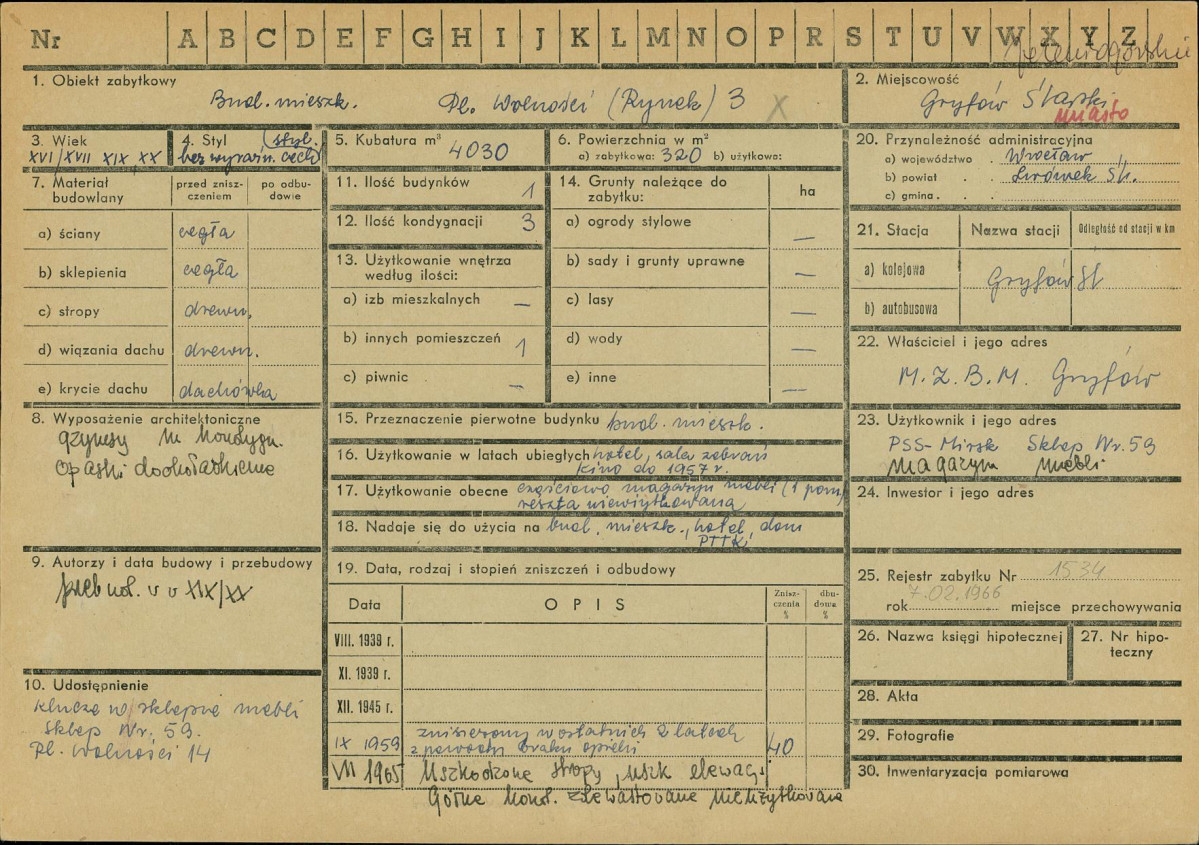 Nr A B C D E F G H I J K L M N O P R S T U V W X Y Z
Jeleniogórskie
1. Obiekt zabytkowy
Bud. mieszk. Pl. Wolności (Rynek) 3 X
2. Miejscowość
Gryfów Śląski
miasto
3. Wiek
XVI/XVII XIX XX
4. Styl (styl.
bez wyraźn. cech)
5. Kubatura m³ 4030
6. Powierzchnia w m²
a) zabytkowa: 320 b) użytkowa:
7. Materiał budowlany
przed zniszczeniem
po odbudowie
a) ściany cegła
b) sklepienia cegła
c) stropy drewn.
d) wiązania dachu drewn.
e) krycie dachu dachówka
8. Wyposażenie architektoniczne
gzymsy m. kondygn.
opaski dookołaokienne
9. Autorzy i data budowy i przebudowy
przebud. w XIX/XX
10. Udostępnienie
Klucze w sklepie mebli
Sklep Nr. 59.
Pl. Wolności 14
11. Ilość budynków 1
12. Ilość kondygnacji 3
13. Użytkowanie wnętrza
według ilości:
a) izb mieszkalnych —
b) innych pomieszczeń 1
c) piwnic —
14. Grunty należące do
zabytku: ha
a) ogrody stylowe —
b) sady i grunty uprawne —
c) lasy —
d) wody —
e) inne —
15. Przeznaczenie pierwotne budynku bud. mieszk.
16. Użytkowanie w latach ubiegłych hotel, sala zebrań
kino do 1957 r.
17. Użytkowanie obecne częściowo magazyn mebli (1 pom)
reszta nieużytkowana
18. Nadaje się do użycia na bud. mieszk., hotel, dom
PTTK
19. Data, rodzaj i stopień zniszczeń i odbudowy
Data OPIS Zniszczenia % dbudowa %
VIII. 1939 r.
XI. 1939 r.
XII. 1945 r.
IX 1959 zniszczony w ostatnich 2 latach
z powodu braku opieki 40
VII 1965 Uszkodzone stropy, uszk elewacj.
Górne kond. zdewastowane nieużytkowane
20. Przynależność administracyjna
a) województwo . Wrocław
b) powiat . . Lwówek Śl.
c) gmina . . .
21. Stacja Nazwa stacji Odległość od stacji w km
a) kolejowa
Gryfów Śl
b) autobusowa
22. Właściciel i jego adres
M. Z. B. M. Gryfów
23. Użytkownik i jego adres
PSS-Mirsk Sklep Nr. 59
magazyn mebli
24. Inwestor i jego adres
25. Rejestr zabytku Nr 1534
rok 7.02.1966 miejsce przechowywania
26. Nazwa księgi hipotecznej
27. Nr hipoteczny
28. Akta
29. Fotografie
30. Inwentaryzacja pomiarowa